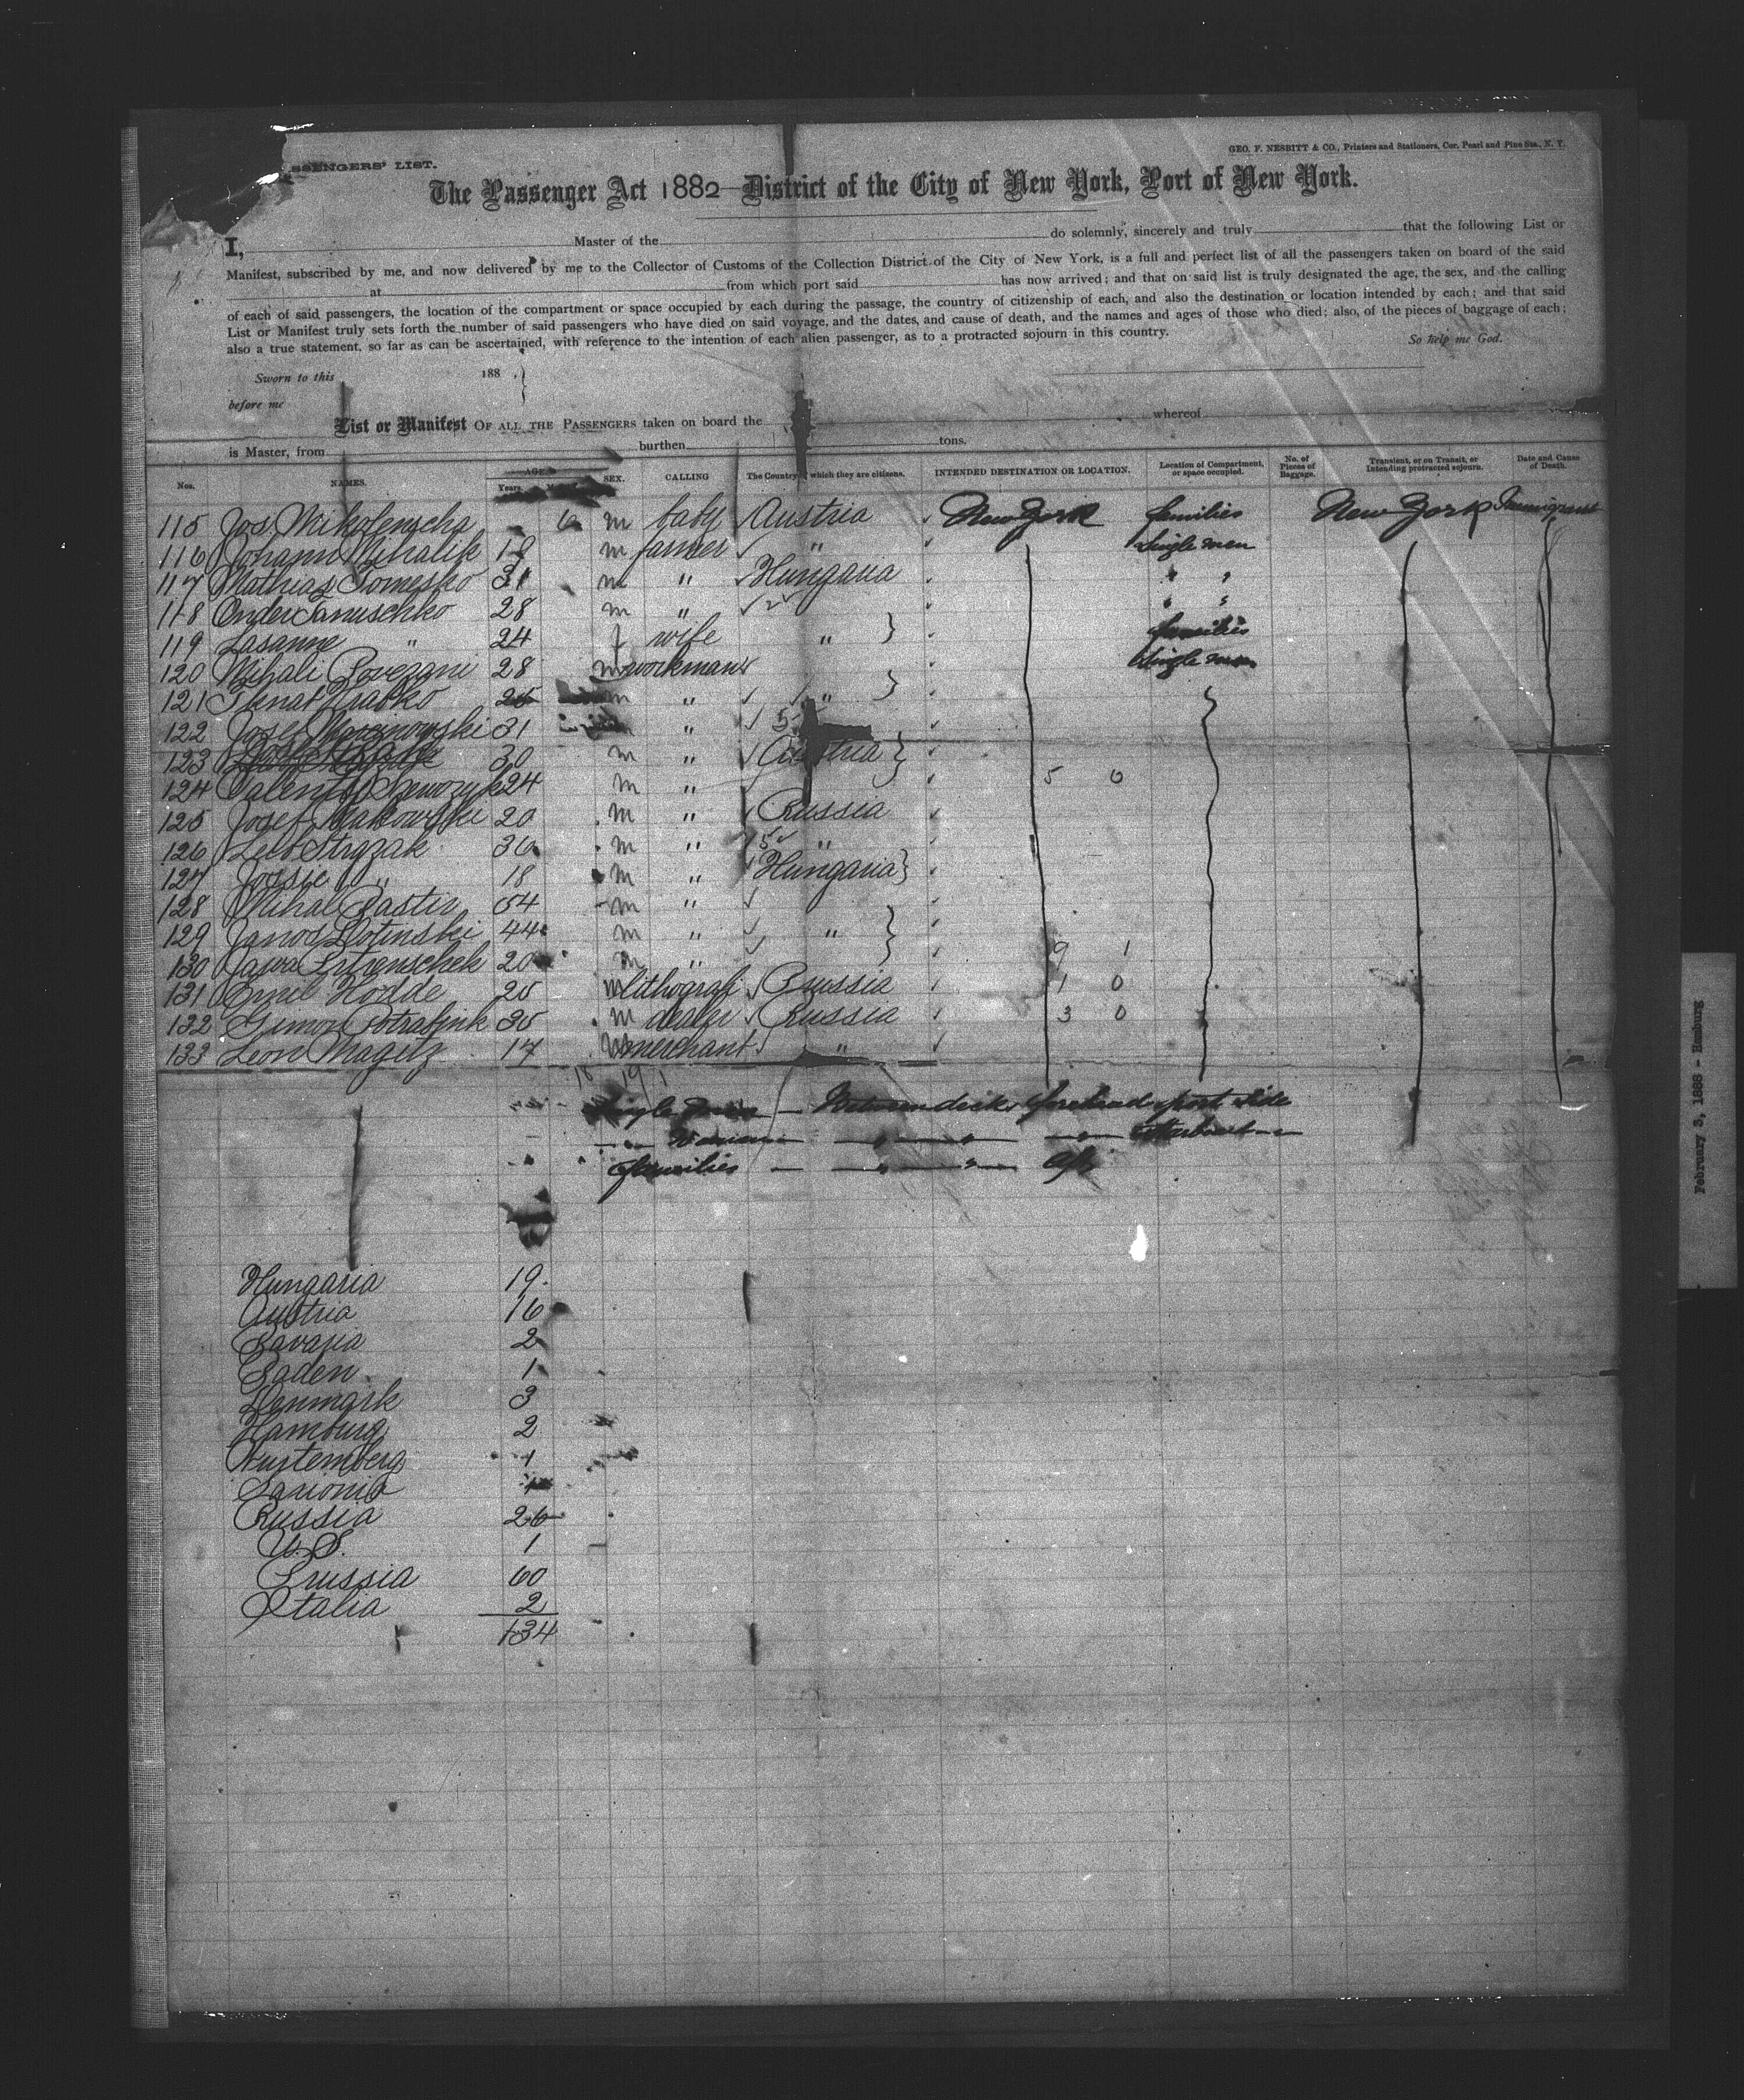 SSENGERS' LIST.
GEO. F. NESBITT & CO., Printers and Stationers, Cor. Pearl and Pine Sts., N. Y.
The Passenger Act 1882 District of the City of New York, Port of New York.
I, Master of the do solemnly, sincerely and truly that the following List or
Manifest, subscribed by me, and now delivered by me to the Collector of Customs of the Collection District of the City of New York, is a full and perfect list of all the passengers taken on board of the said
at from which port said has now arrived; and that on said list is truly designated the age, the sex, and the calling
of each of said passengers, the location of the compartment or space occupied by each during the passage, the country of citizenship of each, and also the destination or location intended by each; and that said
List or Manifest truly sets forth the number of said passengers who have died on said voyage, and the dates, and cause of death, and the names and ages of those who died; also, of the pieces of baggage of each;
also a true statement, so far as can be ascertained, with reference to the intention of each alien passenger, as to a protracted sojourn in this country. So help me God.
Sworn to this 188 .
before me
List or Manifest OF ALL THE PASSENGERS taken on board the whereof
is Master, from burthen tons.
Nos. NAMES. AGE Years. SEX. CALLING The Country which they are citizens. INTENDED DESTINATION OR LOCATION. Location of Compartment, or space occupied. No. of Pieces of Baggage. Transient, or on Transit, or Intending protracted sojourn. Date and Cause of Death.
115 Jos. Mikolenscha 6 m baby Austria New York families New York Immigrant
116 Johann Mihalik 18 m farmer " Single men
117 Mathias Tomesko 31 m " Hungaria " "
118 Ender Januschko 28 m " " "
119 Lasanne " 24 f wife " families
120 Mihali Povezani 28 m workman Single men
121 m " "
122 Josef Marcinowski 31 m " 5
123 30 m " Austria
124 24 m " 5 0
125 Josef Makowski 20 m " Russia
126 Leib Strzak 30 m " 5 "
127 " 18 m " Hungaria
128 Mihal Pastir 54 m "
129 Janos 44 m " "
130 20 m " 9 1
131 Emil Hodde 25 m lithograf Prussia 1 0
132 Simon 35 m dealer Russia 3 0
133 Leon Magitz 17 m merchant "
Single men — Between decks forehead port side
" Women — " " " Starboard
Families — " " Aft
Hungaria 19
Austria 16
Bavaria 2
Baden 1
Denmark 3
Hamburg 2
Wurtemberg 1
Saxonia
Russia 26
U. S. 1
Prussia 60
Italia 2
134
February 3, 1888 - Hamburg